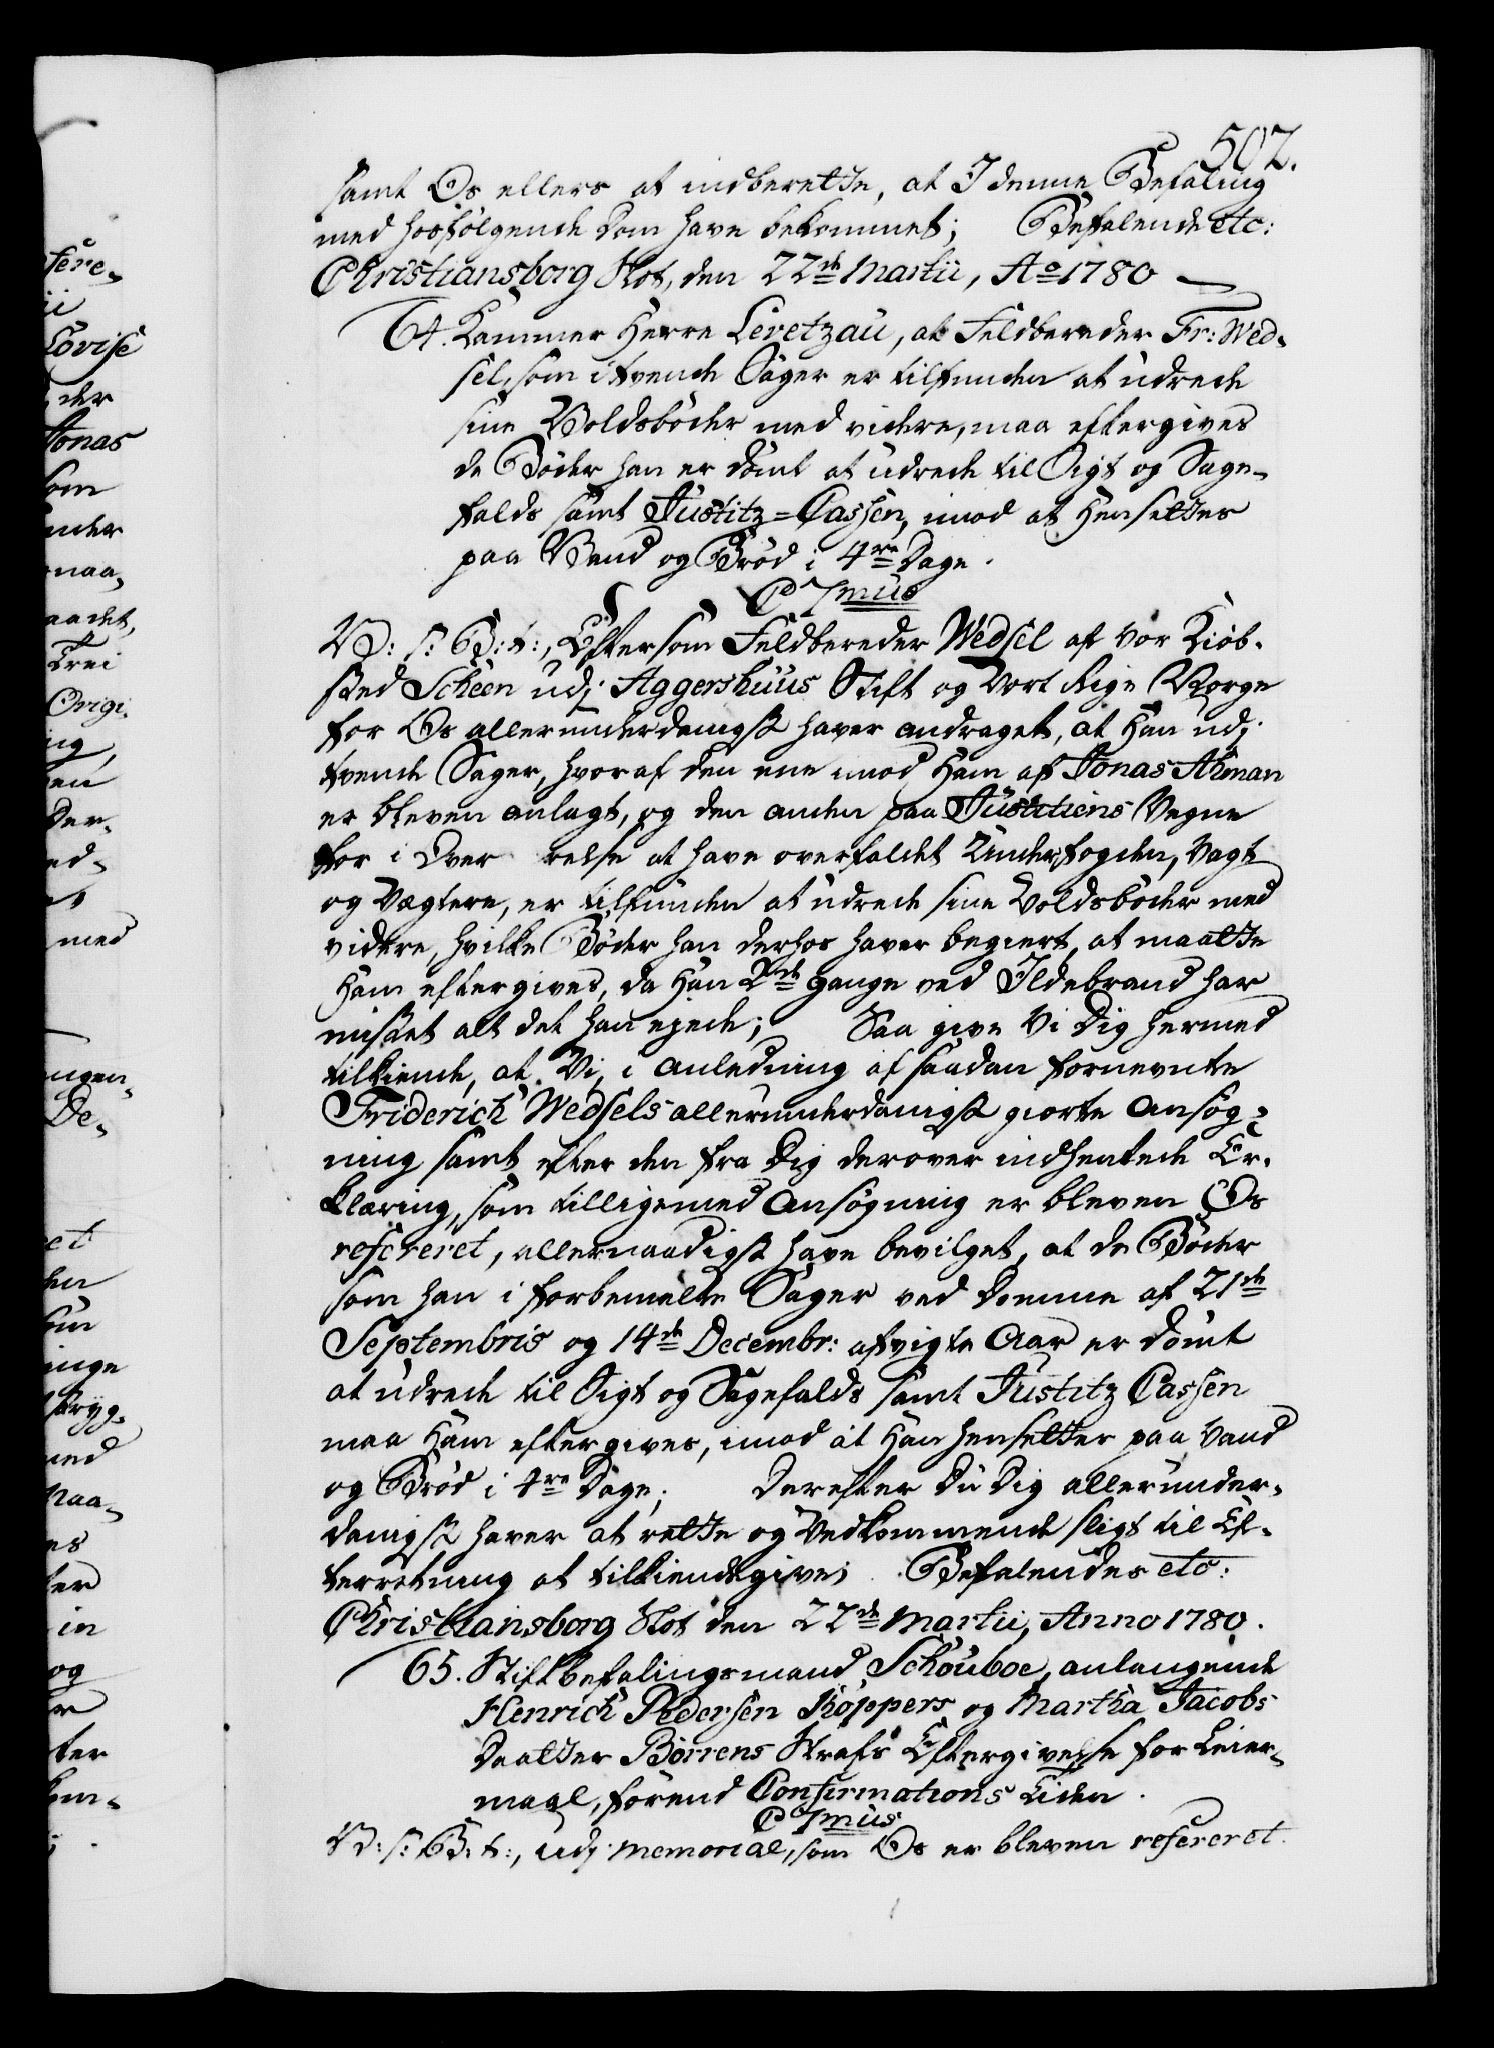 502.
samt Os ellers at indberette, at I denne Befaling
med hosfølgende Dom have bekommet; Befalende etc:
Christiansborg Slot, den 22de Martii, Ao 1780
64. Kammer Herre Levetzau, at Feldbereder Fr: Wed-
sel, som i tvende Sager er tilfunden at udrede
sine Voldsbøder med videre, maa eftergives
de Bøder han er dømt at udrede til Sigt og Sage-
falds samt Justitz-Cassen, imod at Hensettes
paa Vand og Brød i 4re Dage.
C 7mus
V: s: G: t:, Eftersom Feldbereder Wedsel af Vor Kiøb-
sted Scheen udj Aggershuus Stift og Vort Rige Norge
for Os allerunderdanigst haver andraget, at Han udj
tvende Sager, hvoraf den ene imod Ham af Jonas Ahman
er bleven anlagt, og den anden paa Justitiens Vegne
for i Over relse at have overfaldet Underfogden, Vagt
og Vægtere, er tilfunden at udrede sine Voldsbøder med
videre, hvilke Bøder han derhos haver begiert, at maatte
Ham eftergives, da Han 2de Gange ved Ildebrand har
mistet alt det han ejede; Saa give Vi Dig hermed
tilkiende, at Vi, i Anledning af saadan fornevnte
Friderich Wedsels allerunderdanigst giorte Ansøg-
ning samt efter den fra Dig derover indhentede Er-
klæring, som tilligemed Ansøgning er bleven Os
refereret, allernaadigst have bevilget, at de Bøder
som han i forbemelte Sager ved Domme af 21de
Septembris og 14de Decembr: afvigte Aar er dømt
at udrede til Sigt og Sagefalds samt Justitz Cassen
maa Ham eftergives, imod at Han hensettes paa Vand
og Brød i 4re Dage; Derefter Du Dig allerunder-
danigst haver at rette og Vedkommende sligt til Ef-
terretning at tilkiendegive; Befalendes etc:
Christiansborg Slot den 22de Martii, Anno 1780.
65. Stiftbefalingsmand Schouboe, anlangende
Henrich Pedersen Køppers og Martha Jacobs
Daatter Børrens Strafs Eftergivelse for Leier-
maal, førend Confirmations Tiden.
C 7mus
V: s: G: t:, udj Memorial, som Os er bleven refereret